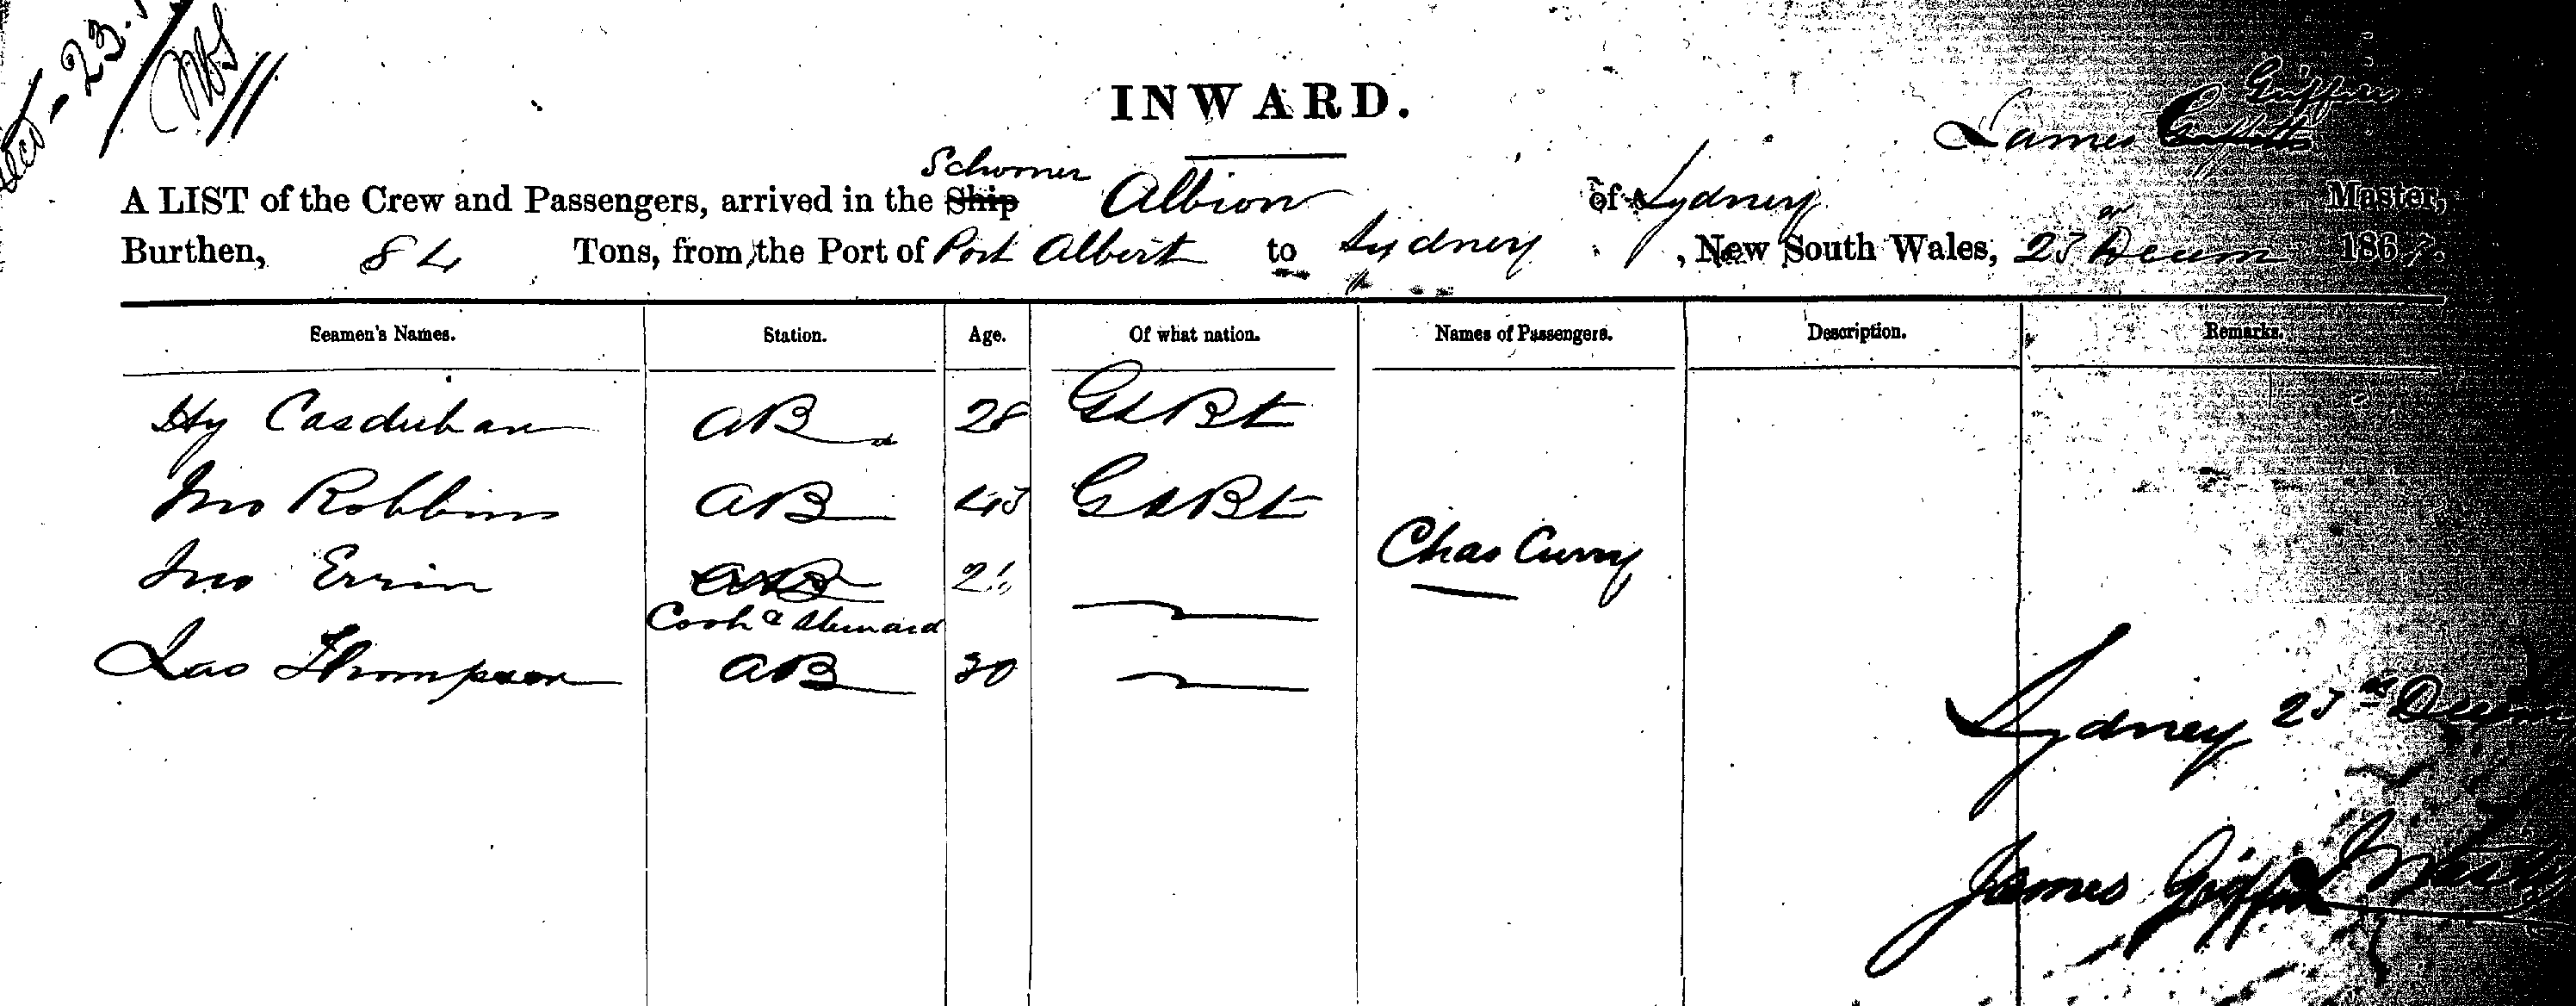 23.
INWARD.
Griffin
James
Schooner
A LIST of the Crew and Passengers, arrived in the Ship Albion of Sydney Master,
Burthen, 84 Tons, from the Port of Port Albert to Sydney, New South Wales, 23 Decem 1867.
Seamen's Names. Station. Age. Of what nation. Names of Passengers. Description. Remarks.
Hy AB 28 Gt Brt
Jno Robbins AB 43 Gt Brt
Chas Curry
Jno Errin AB
Cook & Steward
Jas Thompson AB 30
Sydney 23rd Decem
James Griffin Master